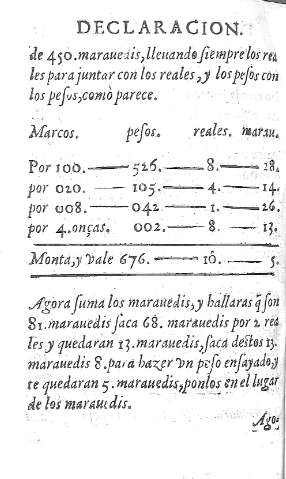 DECLARACION.
de 450. marauedis, lleuando ſiempre los rea
les para juntar con los reales, y los peſos con
los peſos, como parece.
Marcos. peſos. reales. marau.
Por 100. 526. 8. 28.
por 020. 105. 4. 14.
por 008. 042 1. 26.
por 4. onças. 002. 8. 13.
Monta, y vale 676. 10. 5.
Agora ſuma los marauedis, y hallaras q̃ ſon
81. marauedis ſaca 68. marauedis por 2 rea
les y quedaran 13. marauedis, ſaca deſtos 13.
marauedis 8. para hazer vn peſo enſayado, y
te quedaran 5. marauedis, ponlos en el lugar
de los marauedis.
Ago-